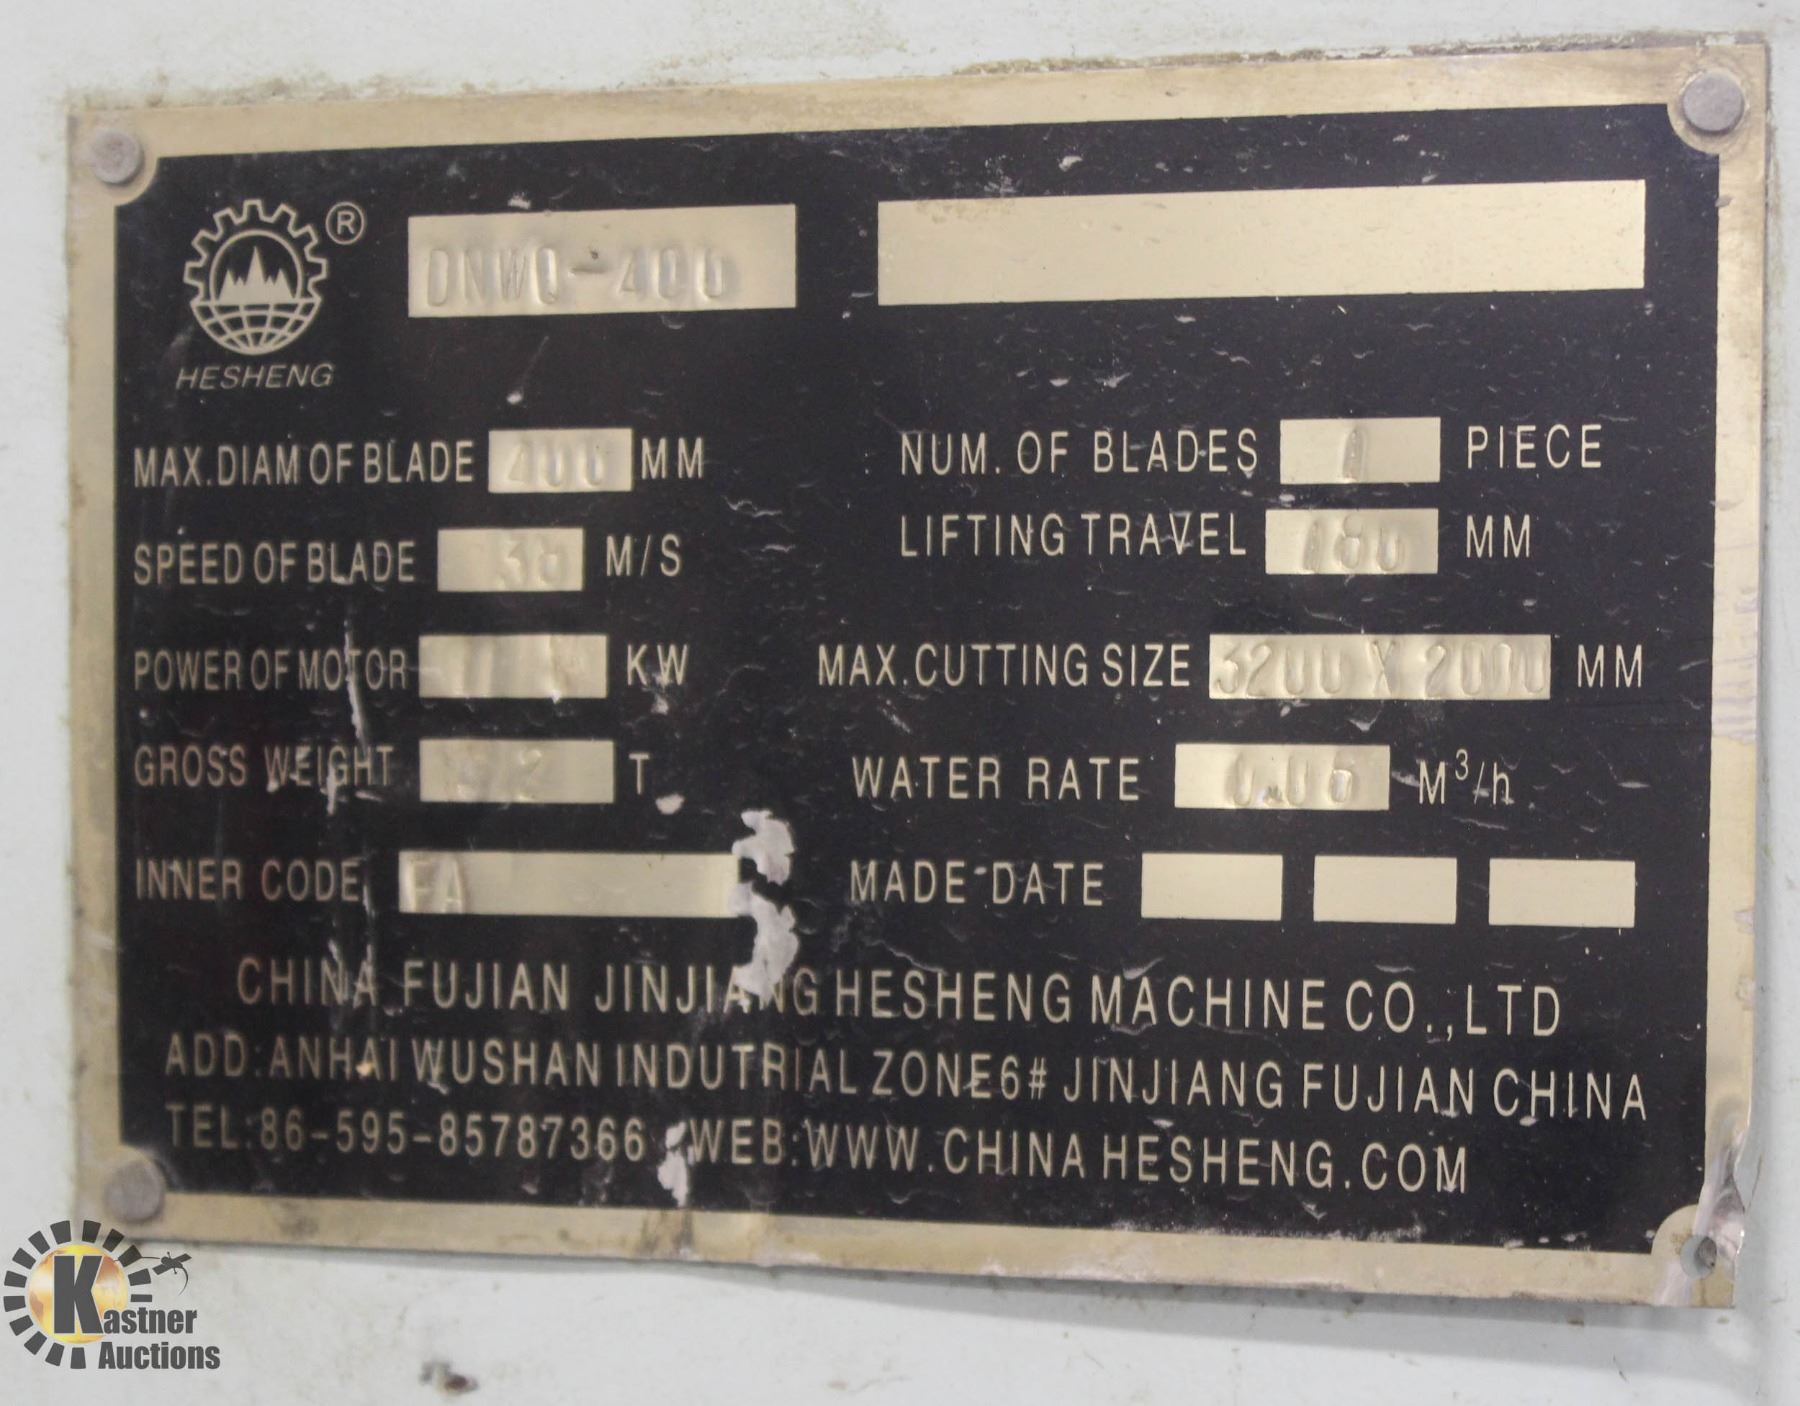 ®
DNWQ-400
HESHENG
MAX.DIAM OF BLADE 400 MM
NUM. OF BLADES 1 PIECE
SPEED OF BLADE M/S
LIFTING TRAVEL 180 MM
POWER OF MOTOR KW
MAX.CUTTING SIZE 3200 X 2000 MM
GROSS WEIGHT T
WATER RATE 0.06 M³/h
INNER CODE FA
MADE DATE
CHINA FUJIAN JINJIANG HESHENG MACHINE CO.,LTD
ADD:ANHAI WUSHAN INDUTRIAL ZONE6# JINJIANG FUJIAN CHINA
TEL:86-595-85787366 WEB:WWW.CHINA HESHENG.COM
Kastner
Auctions